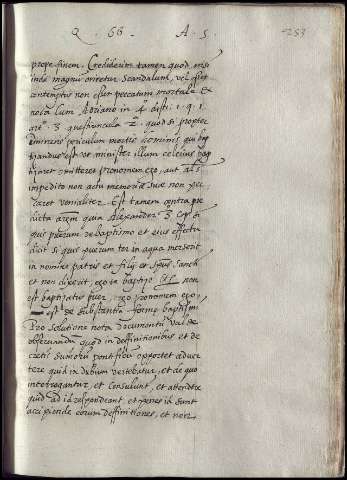 Q. 68 A. 5. 253
prope finem. Crediderim tamen quod nisi
inde magnum oriretur scandalum, vel esset
contemptus non esset peccatum mortale. et
nota cum Adriano in 4 disti: 1. q. 1
art. 3 quæstiuncula 2. quod si propter
eminens periculum mortis hominis qui bap
tizandus est vt minister illum celeius bap
tizaret omitteret pronomen ego, aut als
impedito non actu memoriæ suæ non pec
caret venialiter. Est tamen contra præ
dicta arem quia Alexander 3 cap si
quis puerum de baptismo et eius effectu
dicit si quis puerum ter in aqua merserit
in nomine patris et filij et Spus Sancti
et non dixerit, ego te baptizo non
est baptizatus puer, ergo pronomen ego
est de substantia formæ baptismi
Pro solutione nota documentum valde
observandum quod in deffinitionibus et de
cretis Sumorum pontificum opportet adver
tere quid in dubium vertebatur, et de quo
interrogantur, et consulunt, et attendere
quid ad id respondeant, et penes id sunt
accipiendæ eorum deffinitiones, et non